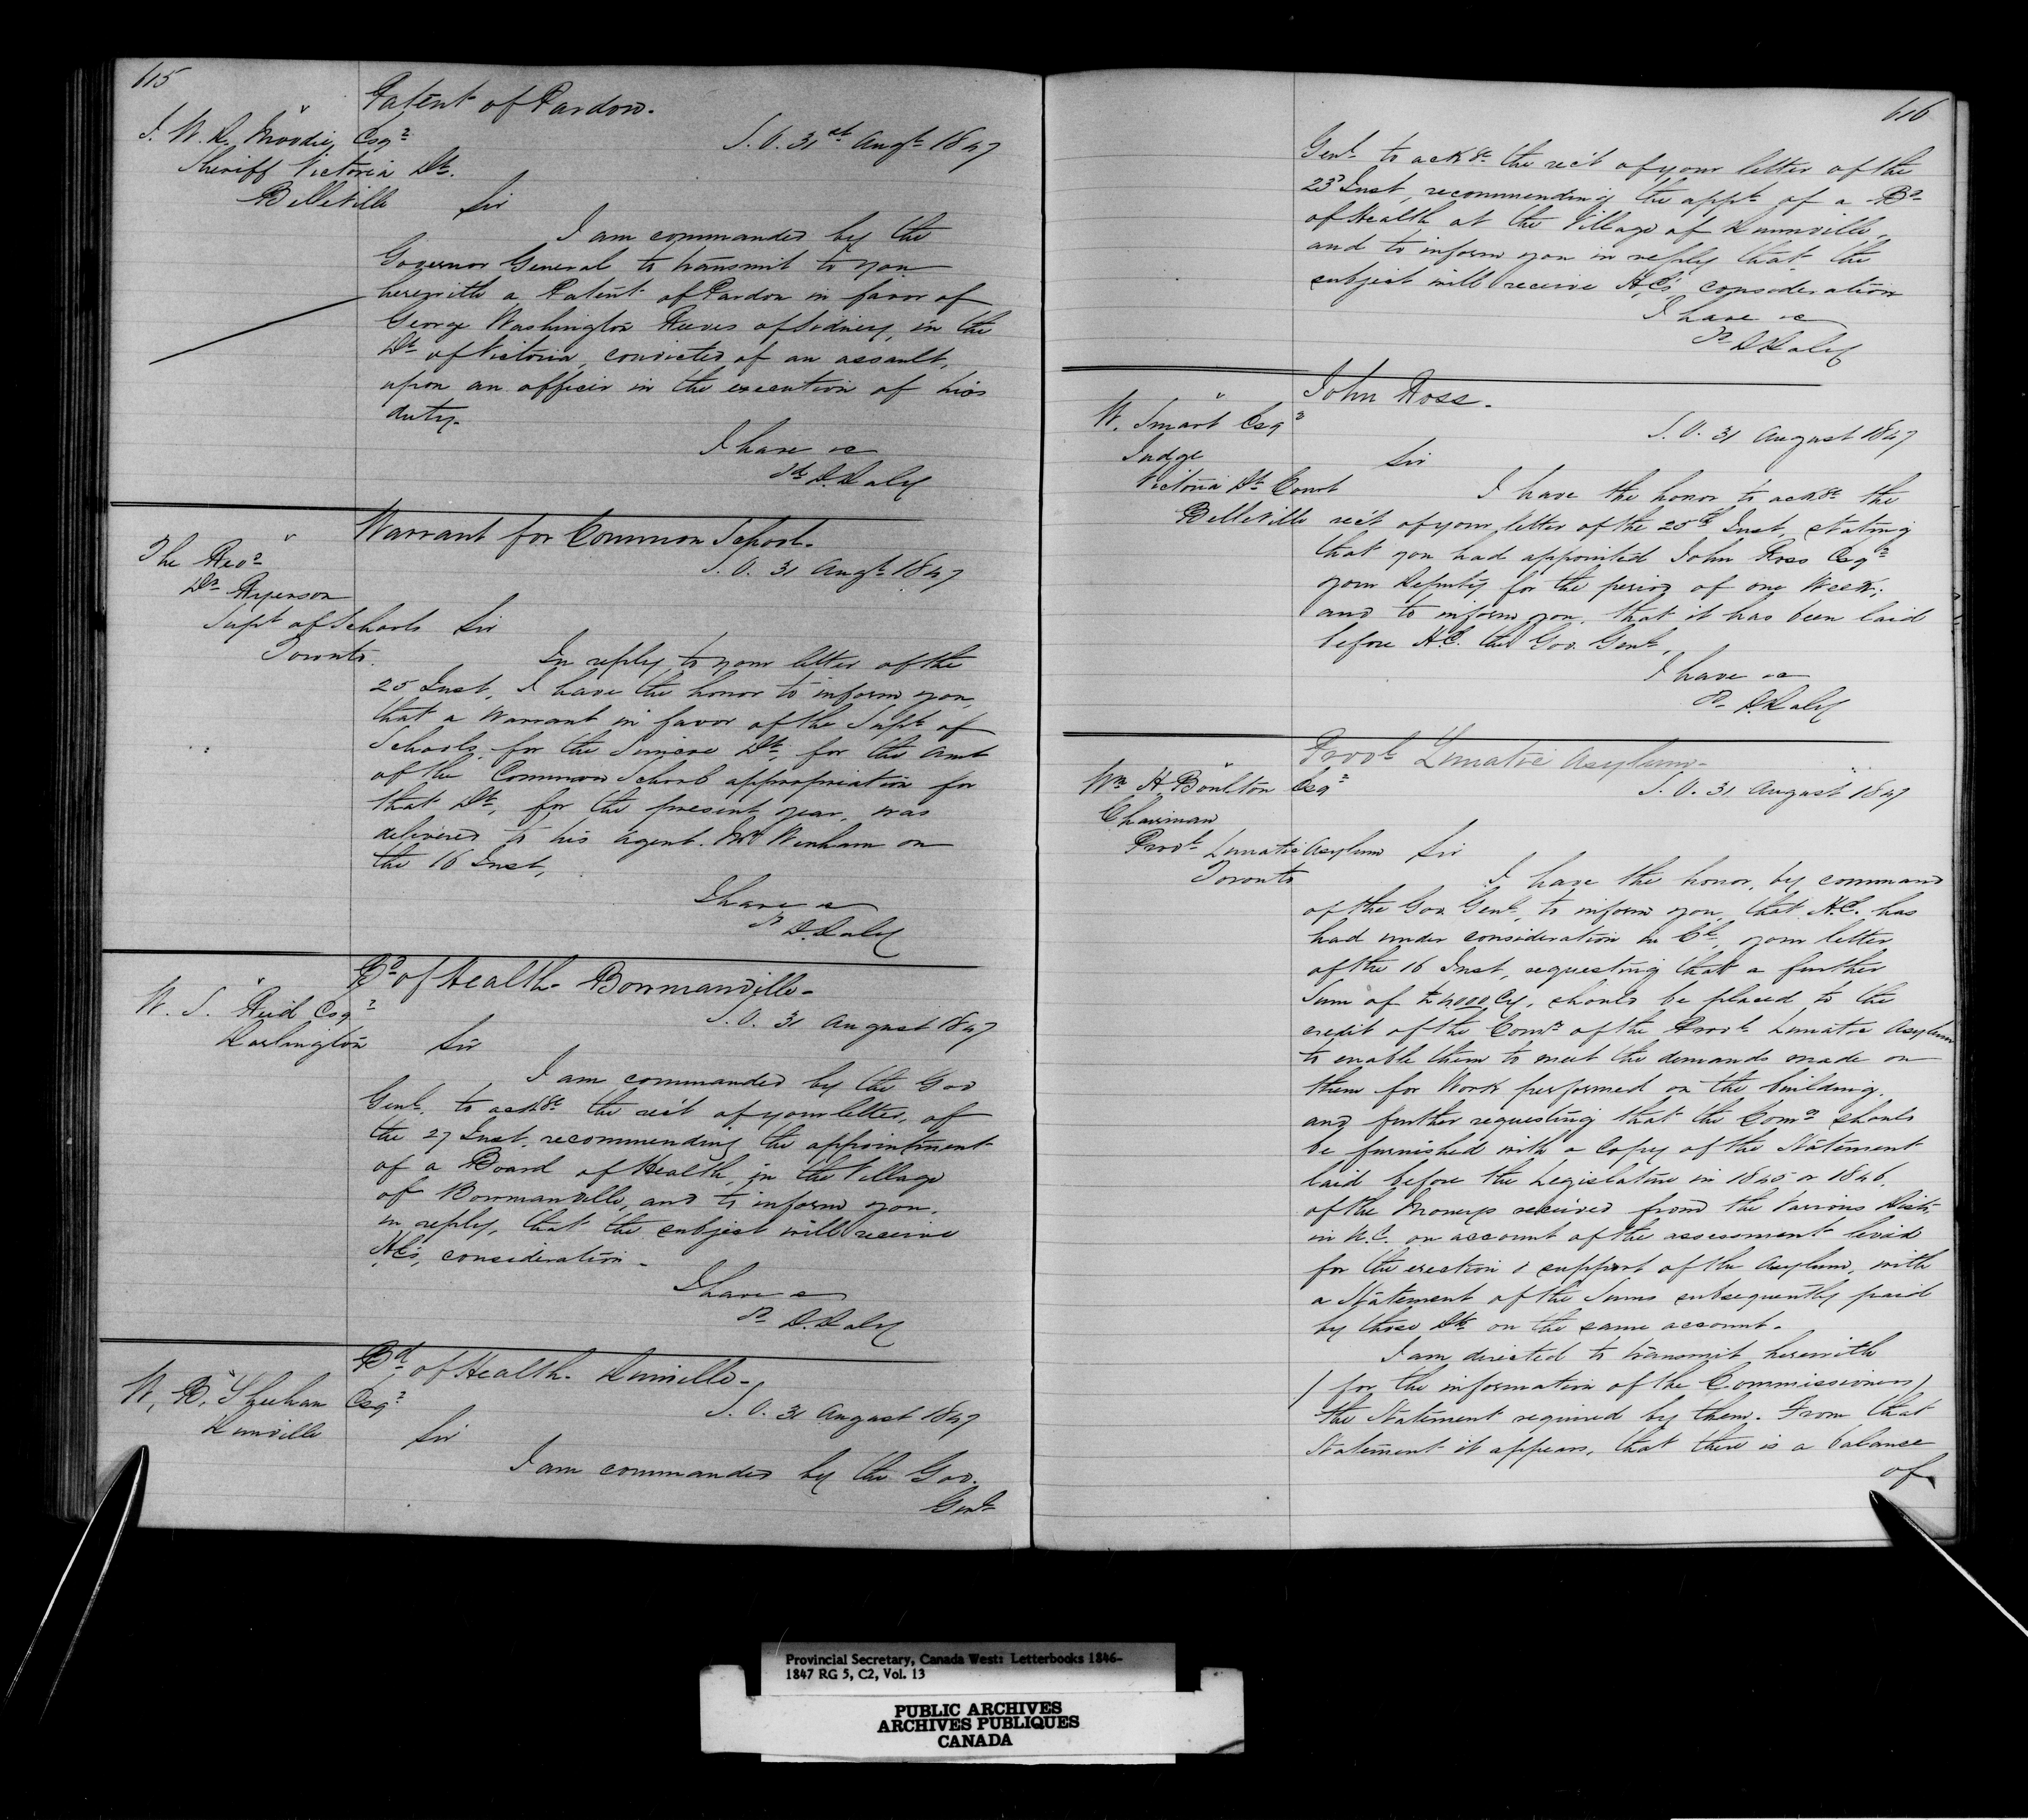 615
Patent of Pardon.
J. W. D. Moodie, Esqr
S. O. 31st Augt 1847
Sheriff Victoria Dt.
Belleville
Sir
I am commanded by the
Governor General to transmit to you
herewith a Patent of Pardon in favor of
George Washington Reeves of Sidney, in the
Dt of Victoria, convicted of an assault,
upon an officer in the execution of his
duty.
I have &c
sd D. Daly
Warrant for Common School.
The Revd
S. O. 31 Augt 1847
Dr Ryerson
Supt of Schools
Sir
Toronto.
In reply to your letter of the
25 Inst, I have the honor to inform you,
that a Warrant in favor of the Supt of
Schools for the Simcoe Dt, for the amt
of the Common School appropriation for
that Dt, for the present year, was
delivered to his Agent. Mr Wenham on
the 16 Inst,
I have &c
sd D. Daly
Bd of Health. Bowmanville.
W. S. Reid Esqr
S. O. 31 August 1847
Darlington
Sir
I am commanded by the Gov
Genl. to ackge the rect of your letter, of
the 27 Inst. recommending the appointment
of a Board of Health, in the Village
of Bowmanville, and to inform you.
in reply, that the subject will receive
H.E's, consideration.
I have &c
sd D. Daly
Bd of Health. Dunville.
W. B. Sheehan Esqr
S. O. 31 August 1847
Dunville
Sir
I am commanded by the Gov.
Genl
616
Genl to ackge the rect of your letter of the
23d Inst, recommending the appt of a Bd
of Health at the Village of Dunnville,
and to inform you in reply that the
subject will receive H.E's consideration
I have &c
sd D Daly
John Ross.
W. Smart Esqr
S. O. 31 August 1847
Judge
Sir
Victoria Dt Court
I have the honor to ackge the
Belleville
rect of your letter of the 25th Inst, stating
that you had appointed John Ross Esqr
your Deputy for the period of one Week;
and to inform you, that it has been laid
before H.E. the Gov. Genl,
I have &c
sd D. Daly
Provl Lunatic Asylum.
Wm H. Boulton Esqr
S. O. 31 August 1847
Chairman
Provl Lunatic Asylum
Sir
Toronto
I have the honor, by command
of the Gov. Genl, to inform you, that H.E. has
had under consideration in Cl, your letter
of the 16 Inst, requesting that a further
Sum of £4000 Cy, should be placed to the
credit of the Comrs of the Provl Lunatic Asylum
to enable them to meet the demands made on
them for Work performed on the building.
and further requesting that the Comrs should
be furnished with a Copy of the Statement
laid before the Legislature in 1845 or 1846.
of the Moneys received from the Various Dists
in U.C. on account of the assessment levied
for the erection & support of the Asylum, with
a Statement of the Sums subsequently paid
by those Dts on the same account.
I am directed to transmit herewith
(for the information of the Commissioners)
the Statement required by them. From that
Statement it appears, that there is a balance
of
Provincial Secretary, Canada West: Letterbooks 1846-
1847 RG 5, C2, Vol. 13
PUBLIC ARCHIVES
ARCHIVES PUBLIQUES
CANADA